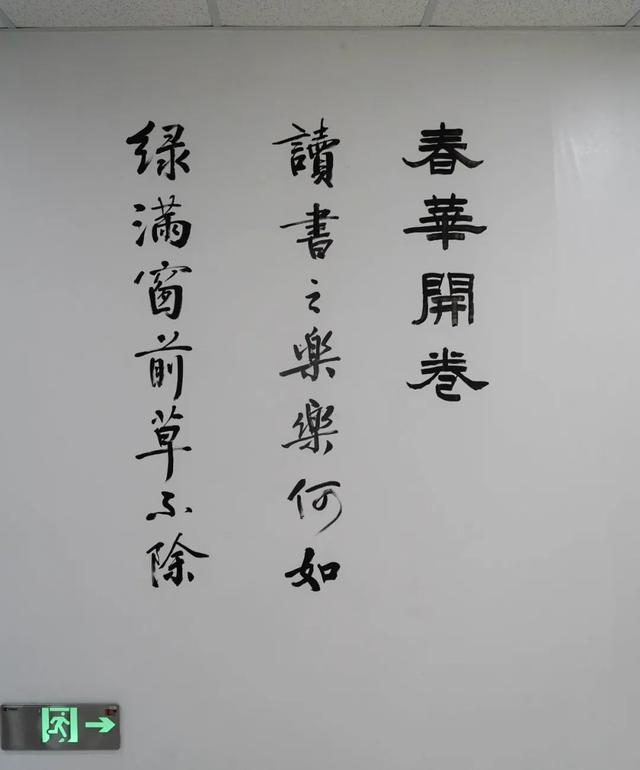 春華開卷
讀書之樂樂何如
绿滿窗前草不除